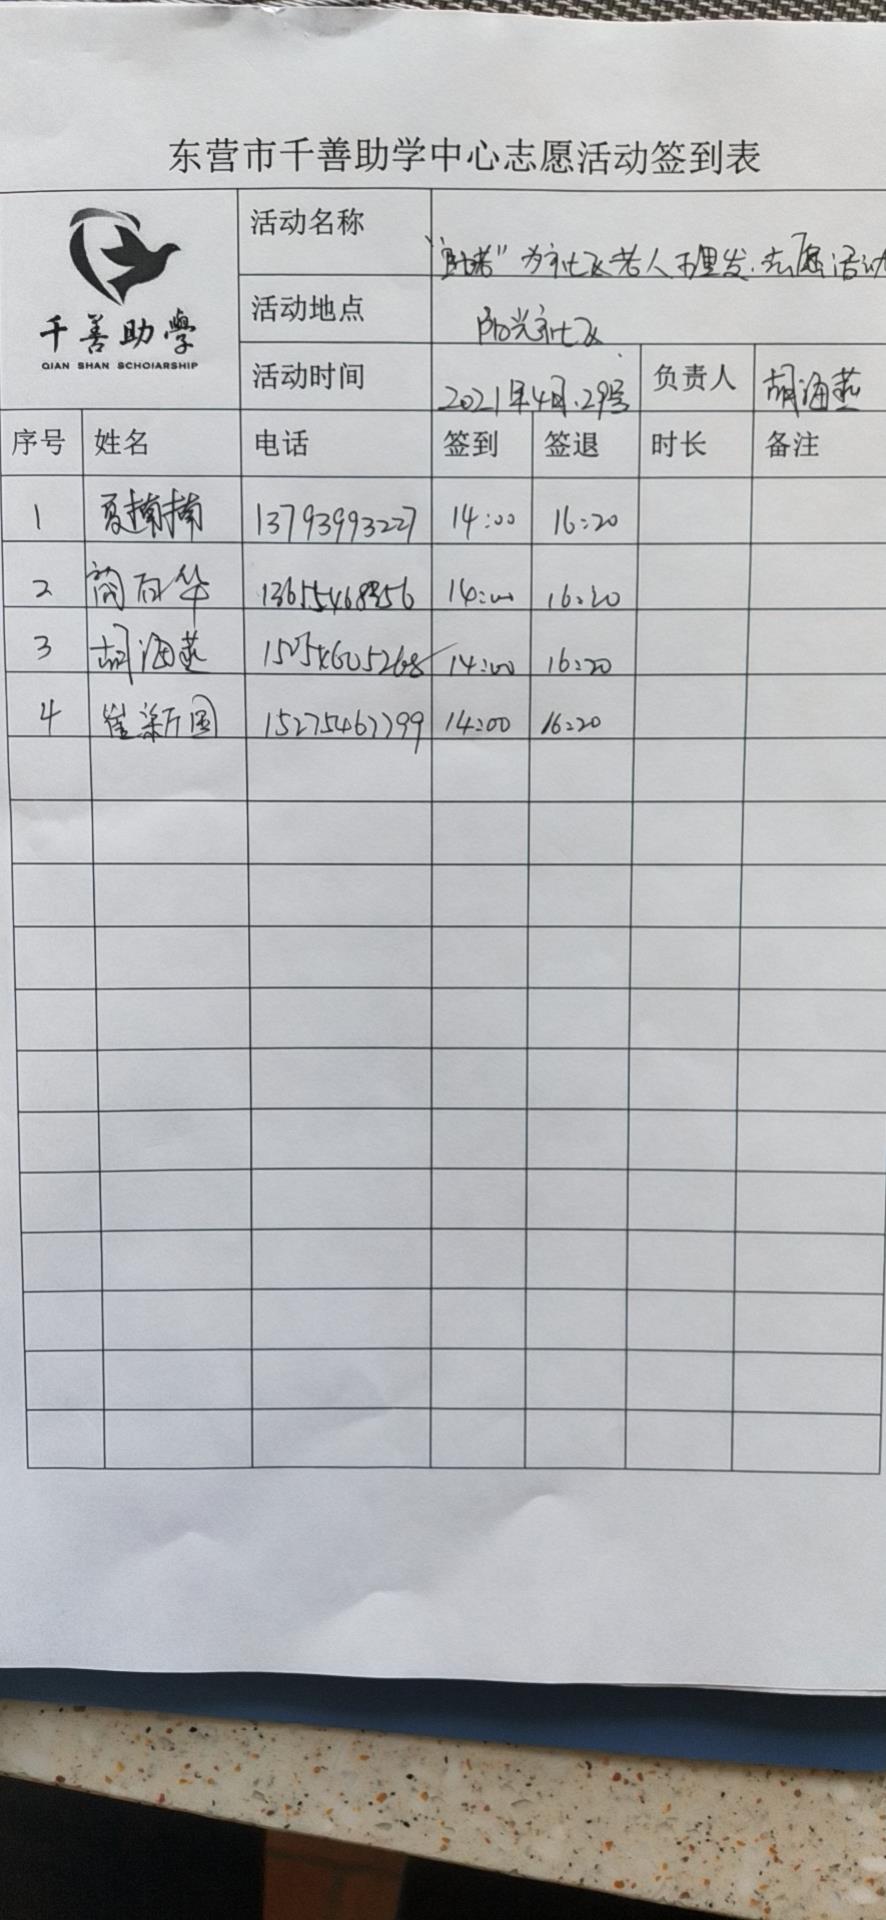 东营市千善助学中心志愿活动签到表
千善助學
QIAN SHAN SCHOIARSHIP
活动名称 "助老"为社区老人理发.志愿活动
活动地点 阳光社区
活动时间 2021年4月.29号 负责人 胡海燕
序号 姓名 电话 签到 签退 时长 备注
1 夏楠楠 13793993227 14:00 16:20
2 14:00 16:20
3 胡海燕 14:00 16:20
4 崔新国 15275467799 14:00 16:20